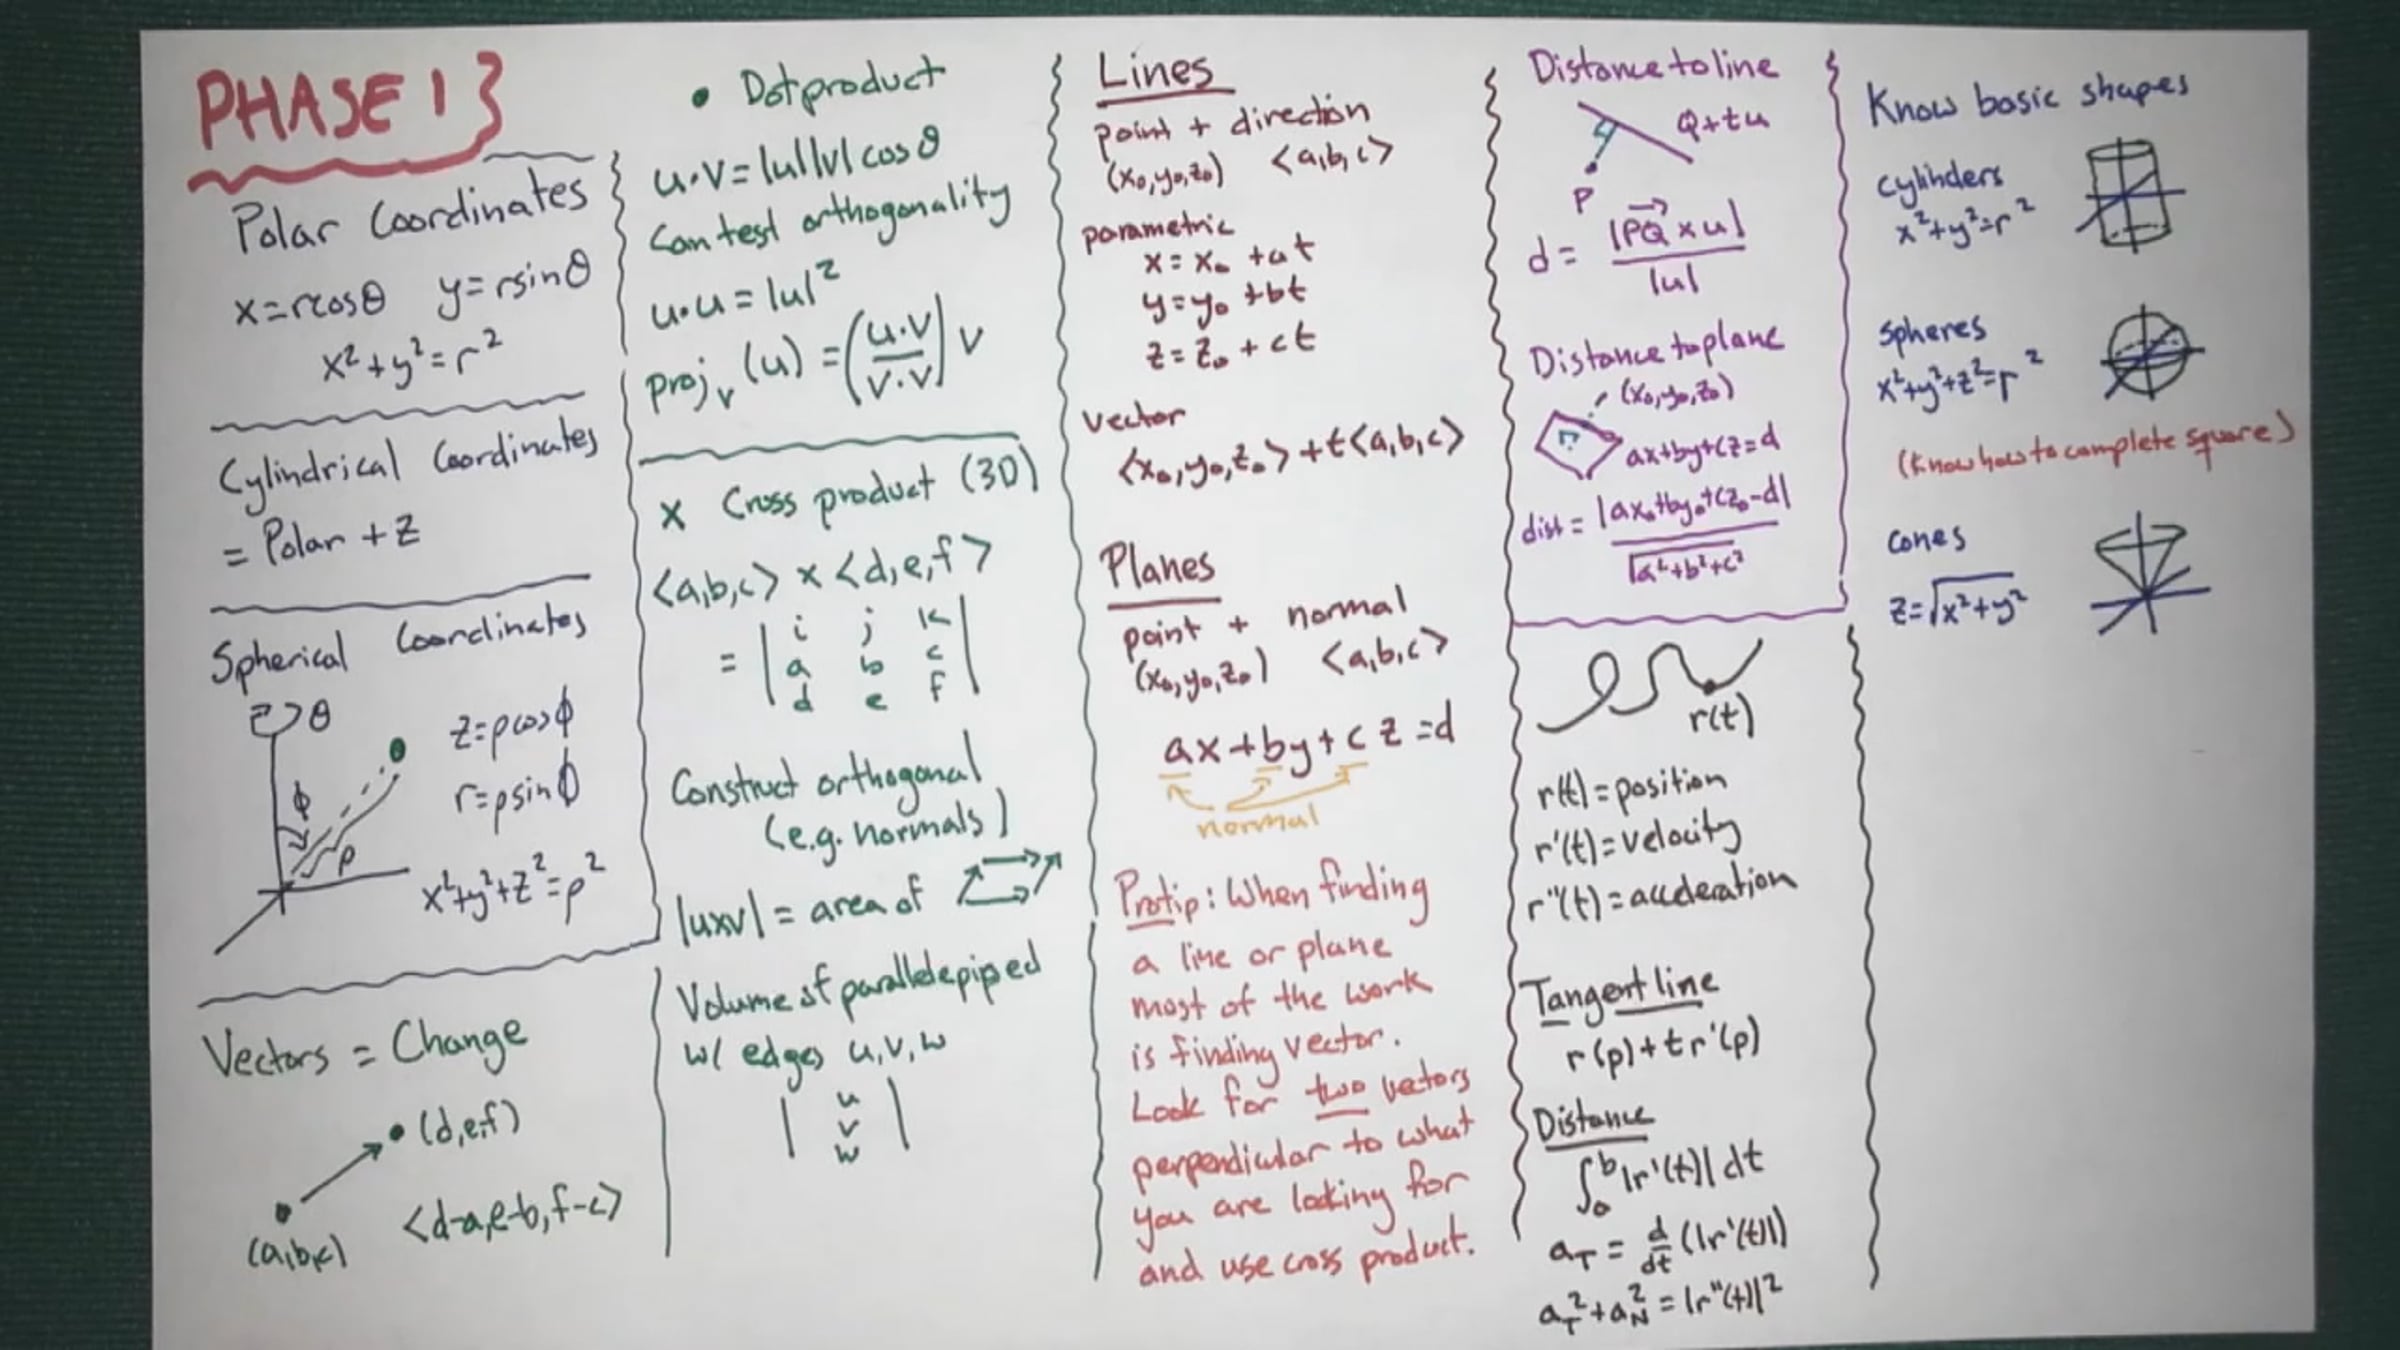 PHASE 1
Polar Coordinates
x=rcosθ y=rsinθ
x²+y²=r²
Cylindrical Coordinates
= Polar + z
Spherical Coordinates
z θ
ϕ
ρ
z=ρcosϕ
r=ρsinϕ
x²+y²+z²=ρ²
Vectors = Change
(d,e,f)
(a,b,c)
<d-a,e-b,f-c>
• Dot product
u·v=|u||v|cosθ
Can test orthogonality
u·u=|u|²
proj_v(u) = (u·v / v·v) v
x Cross product (3D)
<a,b,c> x <d,e,f>
= | i j k
a b c
d e f |
Construct orthogonal
(e.g. normals)
|uxv| = area of
Volume of paralledepiped
w/ edges u,v,w
| u
v
w |
Lines
point + direction
(x₀,y₀,z₀) <a,b,c>
parametric
x=x₀+at
y=y₀+bt
z=z₀+ct
vector
<x₀,y₀,z₀>+t<a,b,c>
Planes
point + normal
(x₀,y₀,z₀) <a,b,c>
ax+by+cz=d
normal
Protip: When finding
a line or plane
most of the work
is finding vector.
Look for two vectors
perpendicular to what
you are looking for
and use cross product.
Distance to line
Q+tu
P
d = |PQ⃗ x u| / |u|
Distance to plane
(x₀,y₀,z₀)
ax+by+cz=d
dist = |ax₀+by₀+cz₀-d| / √a²+b²+c²
r(t)
r(t)=position
r'(t)=velocity
r''(t)=acceleration
Tangent line
r(p)+tr'(p)
Distance
∫ₐᵇ|r'(t)|dt
a_T = d/dt(|r'(t)|)
a_T²+a_N²=|r''(t)|²
Know basic shapes
cylinders
x²+y²=r²
spheres
x²+y²+z²=r²
(Know how to complete square)
cones
z=√x²+y²